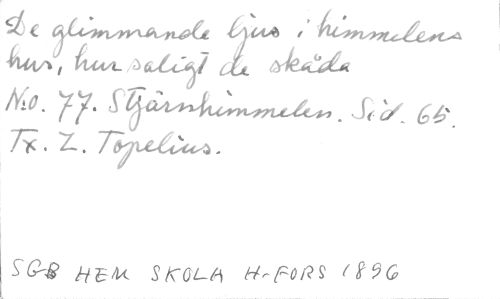 De glimmande ljus i himmelens
hus, hur saligt de skåda
N:o. 77. Stjärnhimmelen. Sid. 65.
Tx. Z. Topelius.
SGB HEM SKOLA H-FORS 1896